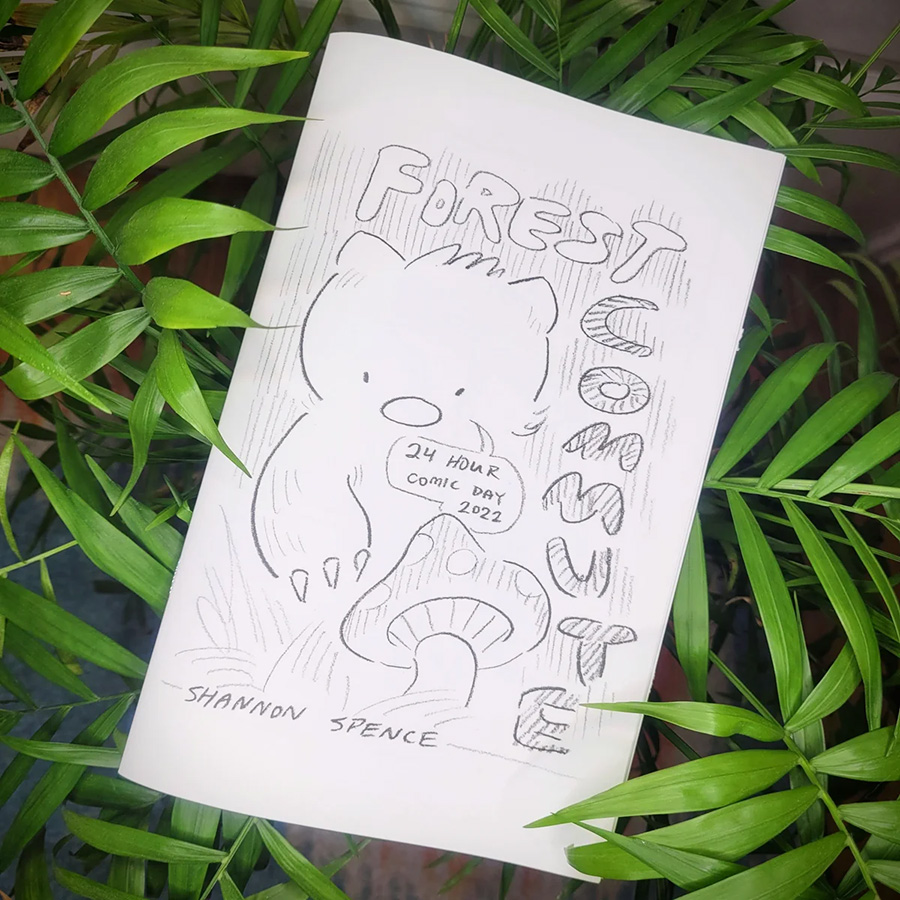 FOREST
COMMUTE
24 HOUR
COMIC DAY
2022
SHANNON SPENCE